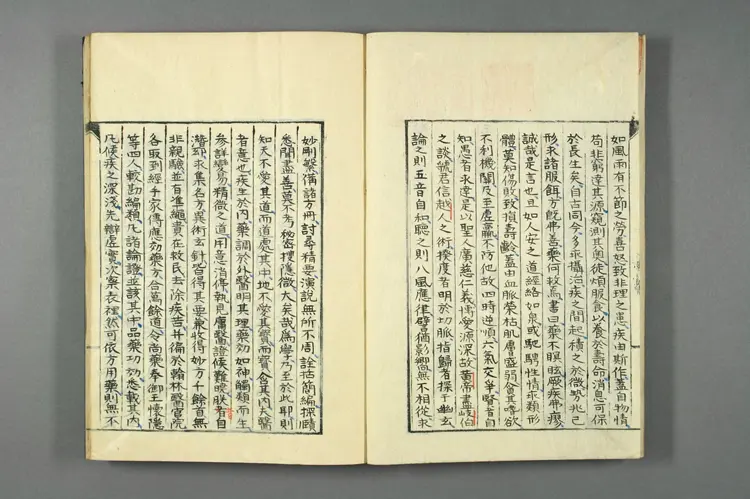 如風雨有不節之勞喜怒致非理之患疾由斯作蓋自物情
苟非窮達其源窺測其奧徒煩服食以養於壽命消息可保
於長生矣自古同今多乖攝治疾之間起積之於微勢兆已
形求諸服餌方既弗善藥何救焉書曰藥不瞑眩厥疾弗瘳
誠哉是言也且如人安之道經絡如泉或馳騁性情乖類形
體莫知傷敗致損壽齡蓋由血脈榮枯肌膚盛弱貪其嗜欲
不利機關及至虛羸不防他故四時逆順六氣交爭賢者自
知愚者未達是以聖人廣慈仁義博愛源深故黃帝盡岐伯
之談虢君信越人之術揆度者明於切脈指歸者探于幽玄
論之則五音自和聽之則八風應律譬猶影響無不相從求
妙刪繁備諸方冊討尋精要演說無所不周詮詁簡編探賾
悉聞盡善莫不考秘密搜隱微大矣哉為學乃至於此耶則
知天不愛其道而道處其中地不愛其寶而寶舍其內夫醫
者意也疾生於內藥調於外醫明其理藥効如神觸類而生
參詳變易精微之道用意消停執見庸醫證候難曉朕昔自
潛邸求集名方異術玄針皆得其要兼收得妙方千餘首無
非親驗並有準繩貴在救民去除疾苦并偹於翰林醫官院
各取到經手家傳應効藥方合萬餘道令尚藥奉御王懷隱
等四人較勘編類凡諸論證並該其中品藥功効悉載其內
凡候疾之深淺先辯虛實次察表裡然可依方用藥則無不